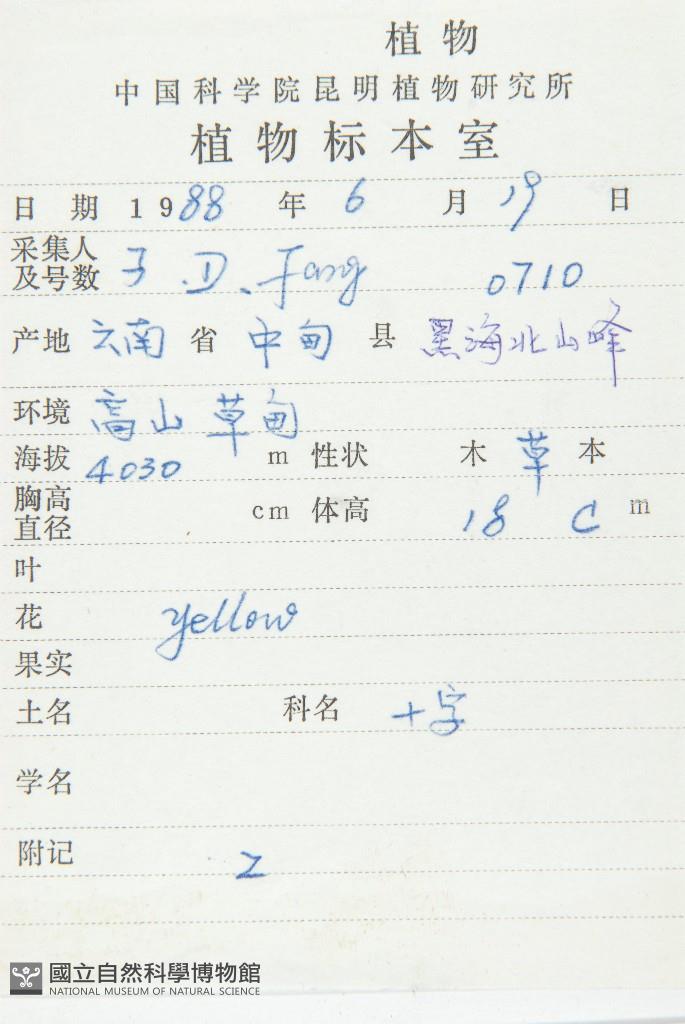 植 物
中国科学院昆明植物研究所
植物标本室
日 期 1988 年 6 月 19 日
采集人
及号数 D. Fang 0710
产地 云南 省 中甸 县 黑海北山峰
环境 高山草甸
海拔 4030 m 性状 木 草 本
胸高
直径 cm 体高 18 c m
叶
花 yellow
果实
土名 科名 十字
学名
附记 2
國立自然科學博物館
NATIONAL MUSEUM OF NATURAL SCIENCE